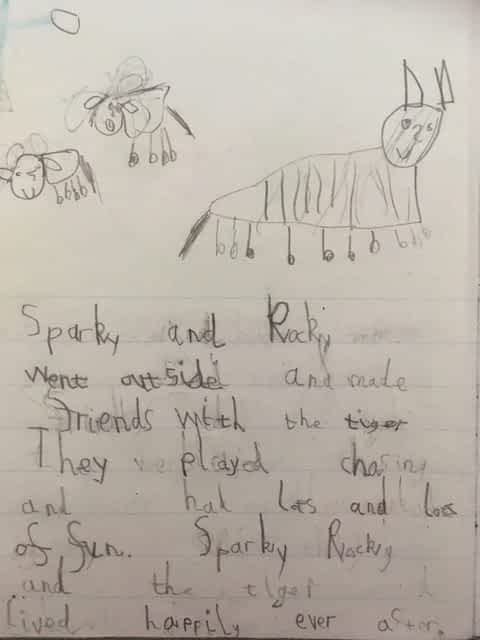 Sparky and Rocky
went outside and made
friends with the tiger
They played chasing
and had lots and lots
of fun. Sparky Rocky
and the tiger
lived happily ever after.